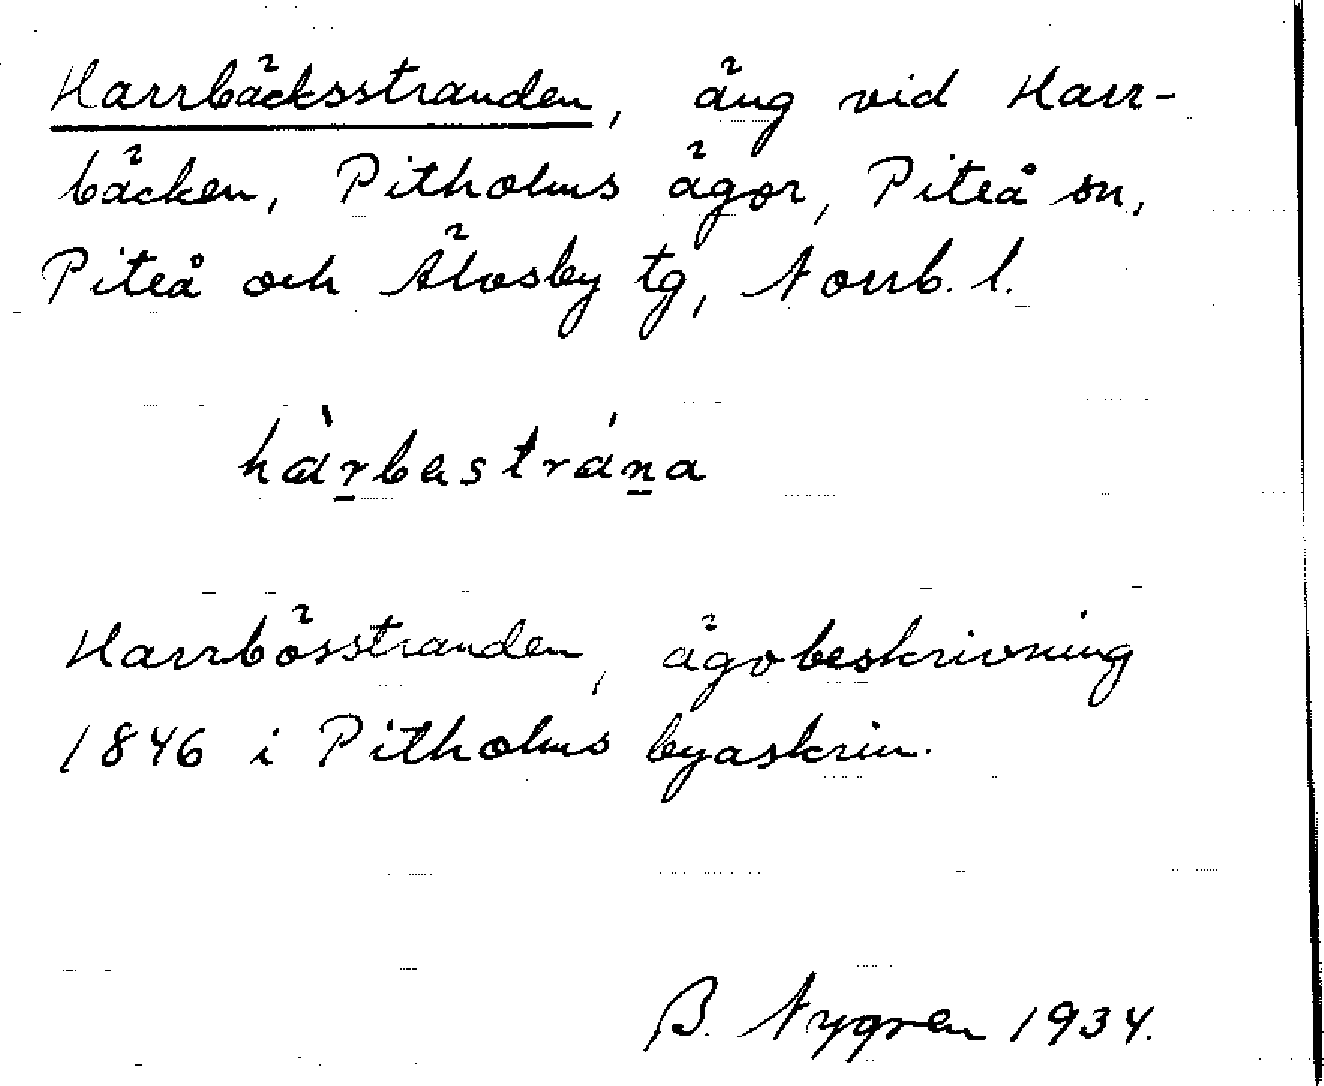 Harrbäcksstranden, äng vid Harr-
bäcken, Pitholms ägor, Piteå sn,
Piteå och Älvsby tg, Norrb. l.
hàrbestrána
Harrbösstranden, ägobeskrivning
1846 i Pitholms byaskrin.
B. Nygren 1934.